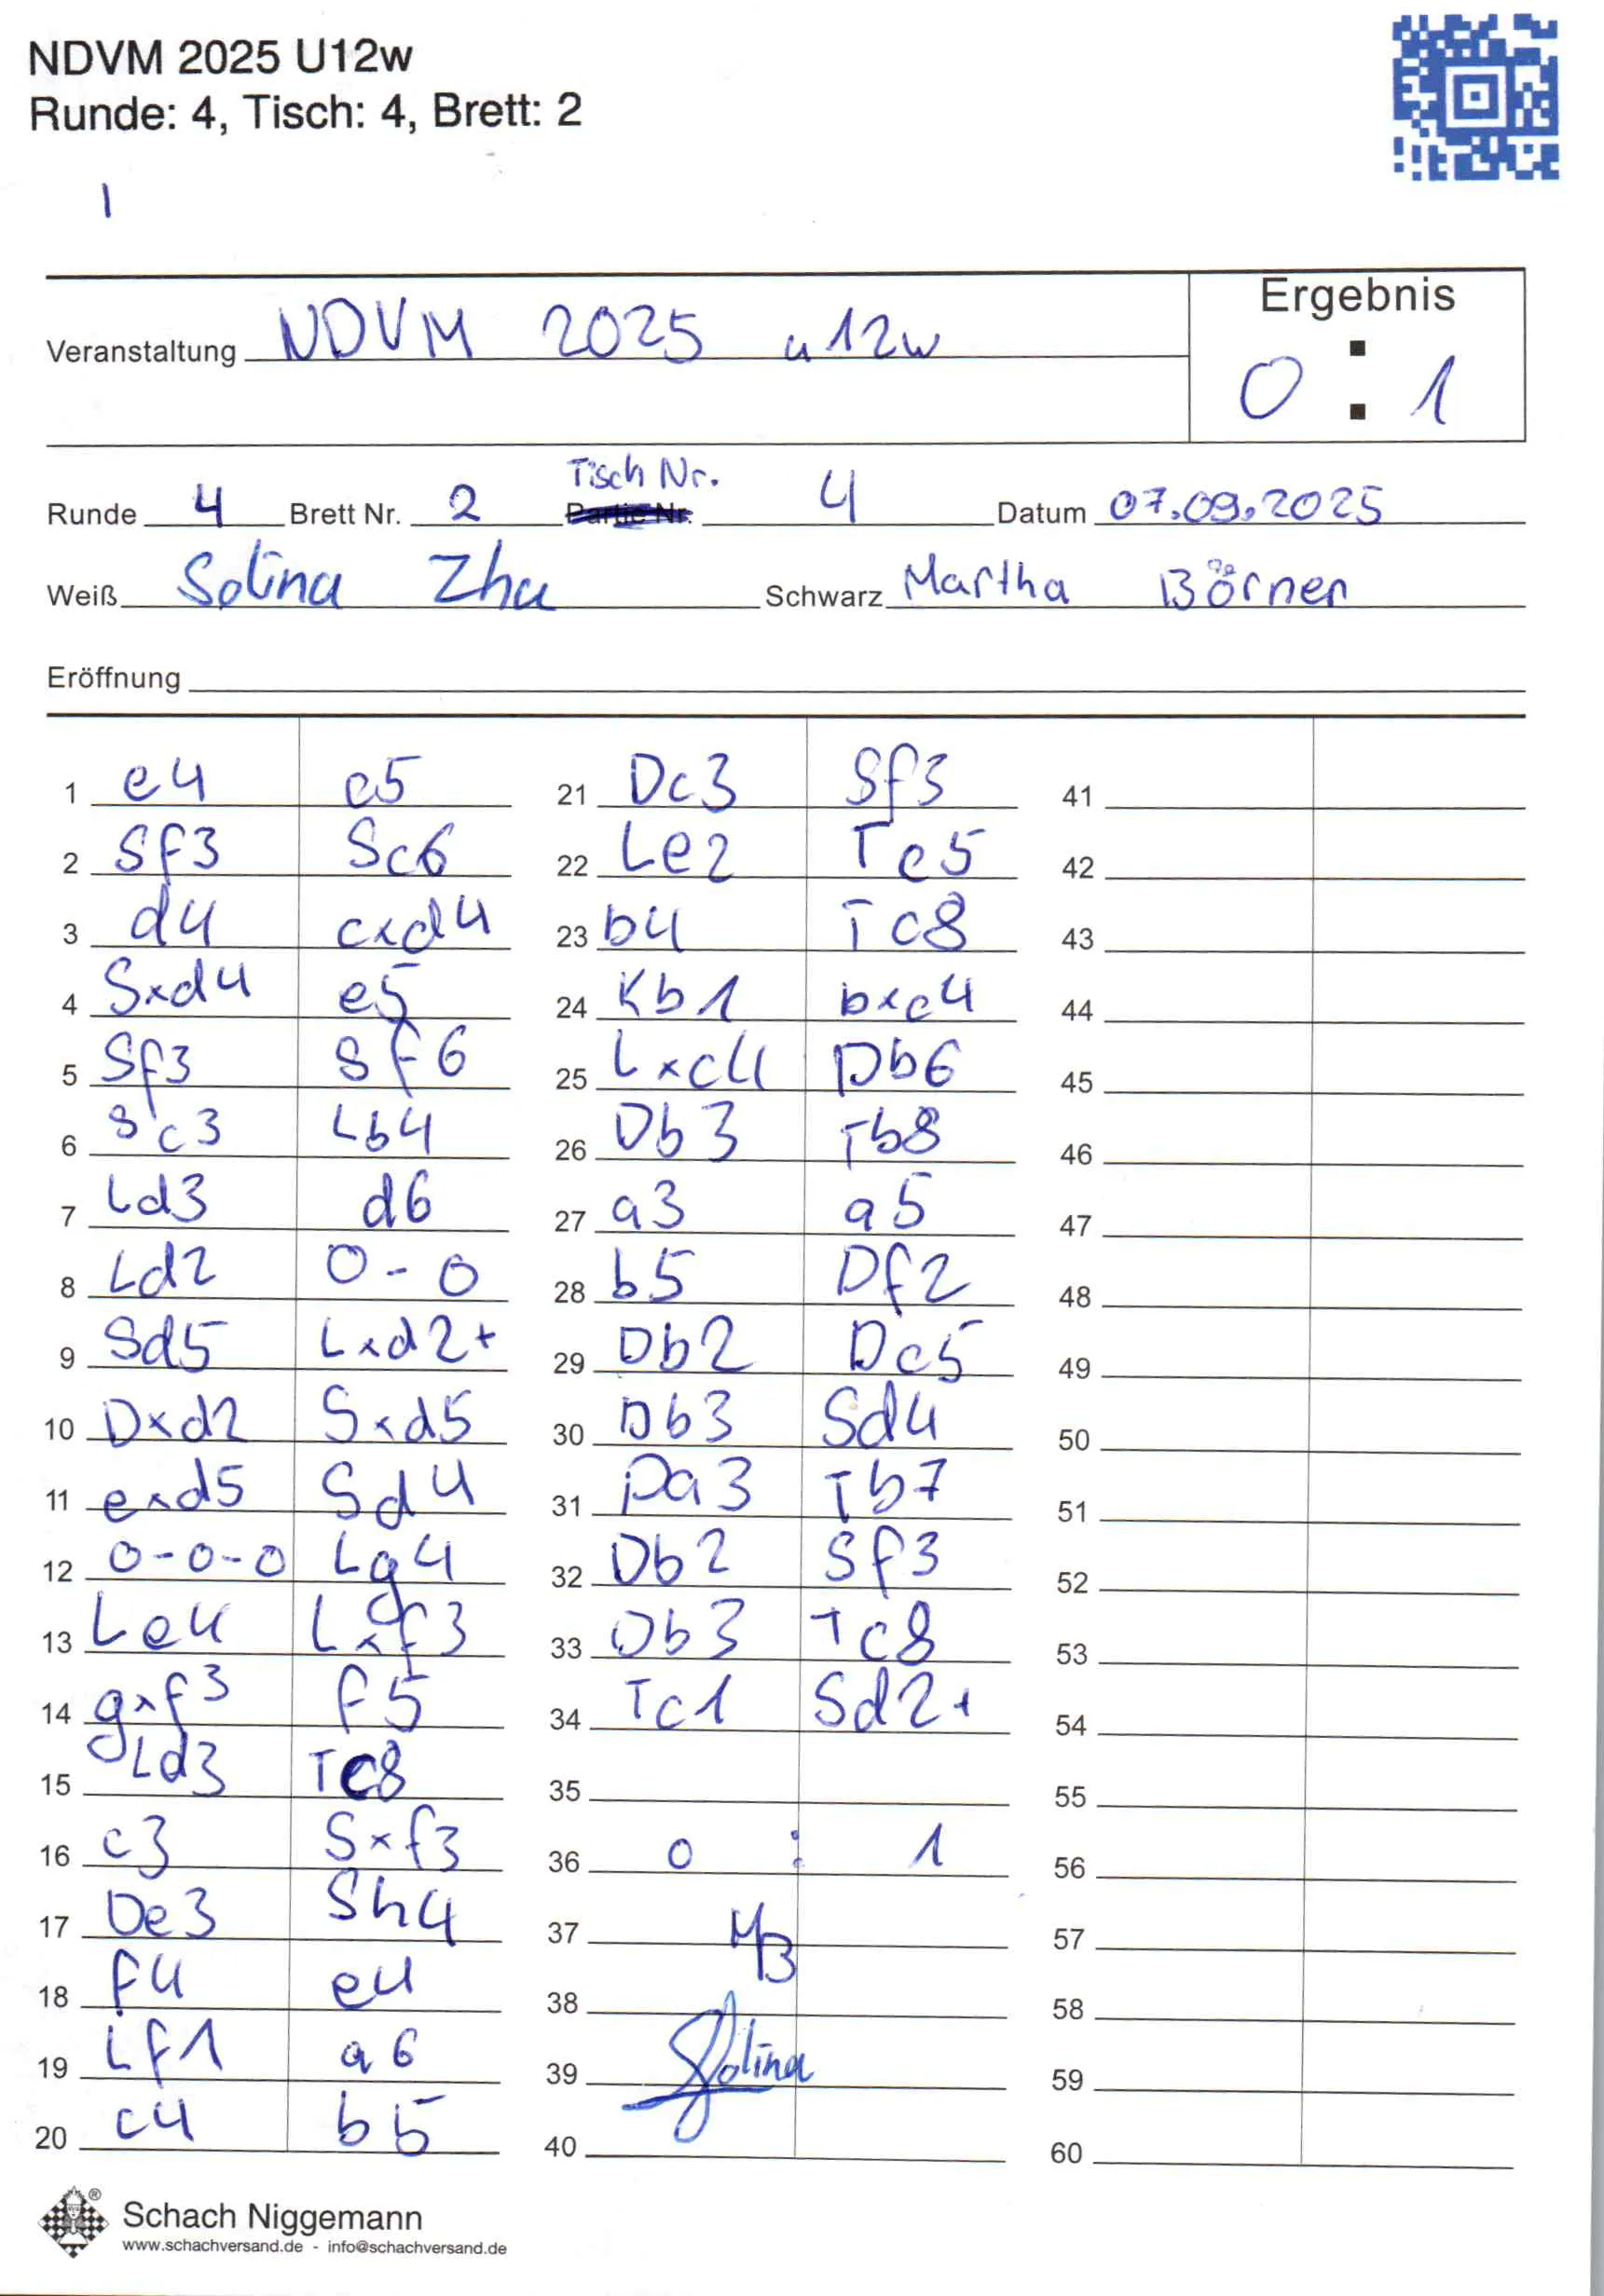 NDVM 2025 U12w
Runde: 4, Tisch: 4, Brett: 2
Ergebnis
Veranstaltung NDVM 2025 u12w
0 : 1
Tisch Nr.
Runde 4 Brett Nr. 2 Partie Nr. 4 Datum 07.09.2025
Weiß Solina Zhu Schwarz Martha Börner
Eröffnung
1 e4 c5
2 Sf3 Sc6
3 d4 cxd4
4 Sxd4 e5
5 Sf3 Sf6
6 Sc3 Lb4
7 Ld3 d6
8 Ld2 0-0
9 Sd5 Lxd2+
10 Dxd2 Sxd5
11 exd5 Sd4
12 0-0-0 Lg4
13 Le4 Lxf3
14 gxf3 f5
15 Ld3 Tc8
16 c3 Sxf3
17 De3 Sh4
18 f4 e4
19 Lf1 a6
20 c4 b5
21 Dc3 Sf3
22 Le2 Tc5
23 b4 Tc8
24 Kb1 bxc4
25 Lxc4 Db6
26 Db3 Tb8
27 a3 a5
28 b5 Df2
29 Db2 Dc5
30 Db3 Sd4
31 Da3 Tb7
32 Db2 Sf3
33 Db3 Tc8
34 Tc1 Sd2+
35
36 0 : 1
37 MB
38
39 Solina
40
41
42
43
44
45
46
47
48
49
50
51
52
53
54
55
56
57
58
59
60
Schach Niggemann
www.schachversand.de - info@schachversand.de